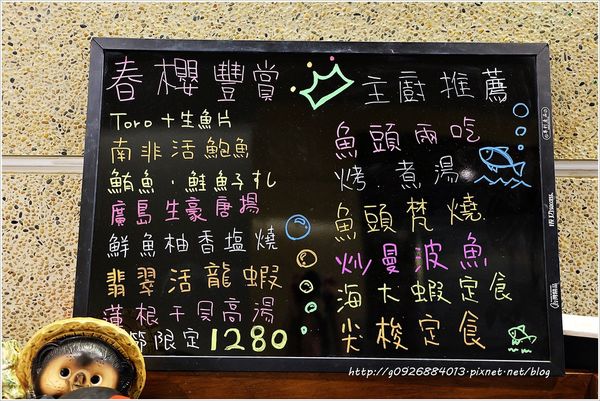 春櫻豐賞
Toro+生魚片
南非活鮑魚
鮪魚.鮭魚子丼
廣島生豪唐揚
鮮魚柚香塩燒
翡翠活龍蝦
蓮根干貝高湯
限定1280
主廚推薦
魚頭兩吃
烤.煮湯
魚頭梵燒
炒曼波魚
海大蝦定食
尖梭定食
http://g0926884013.pixnet.net/blog